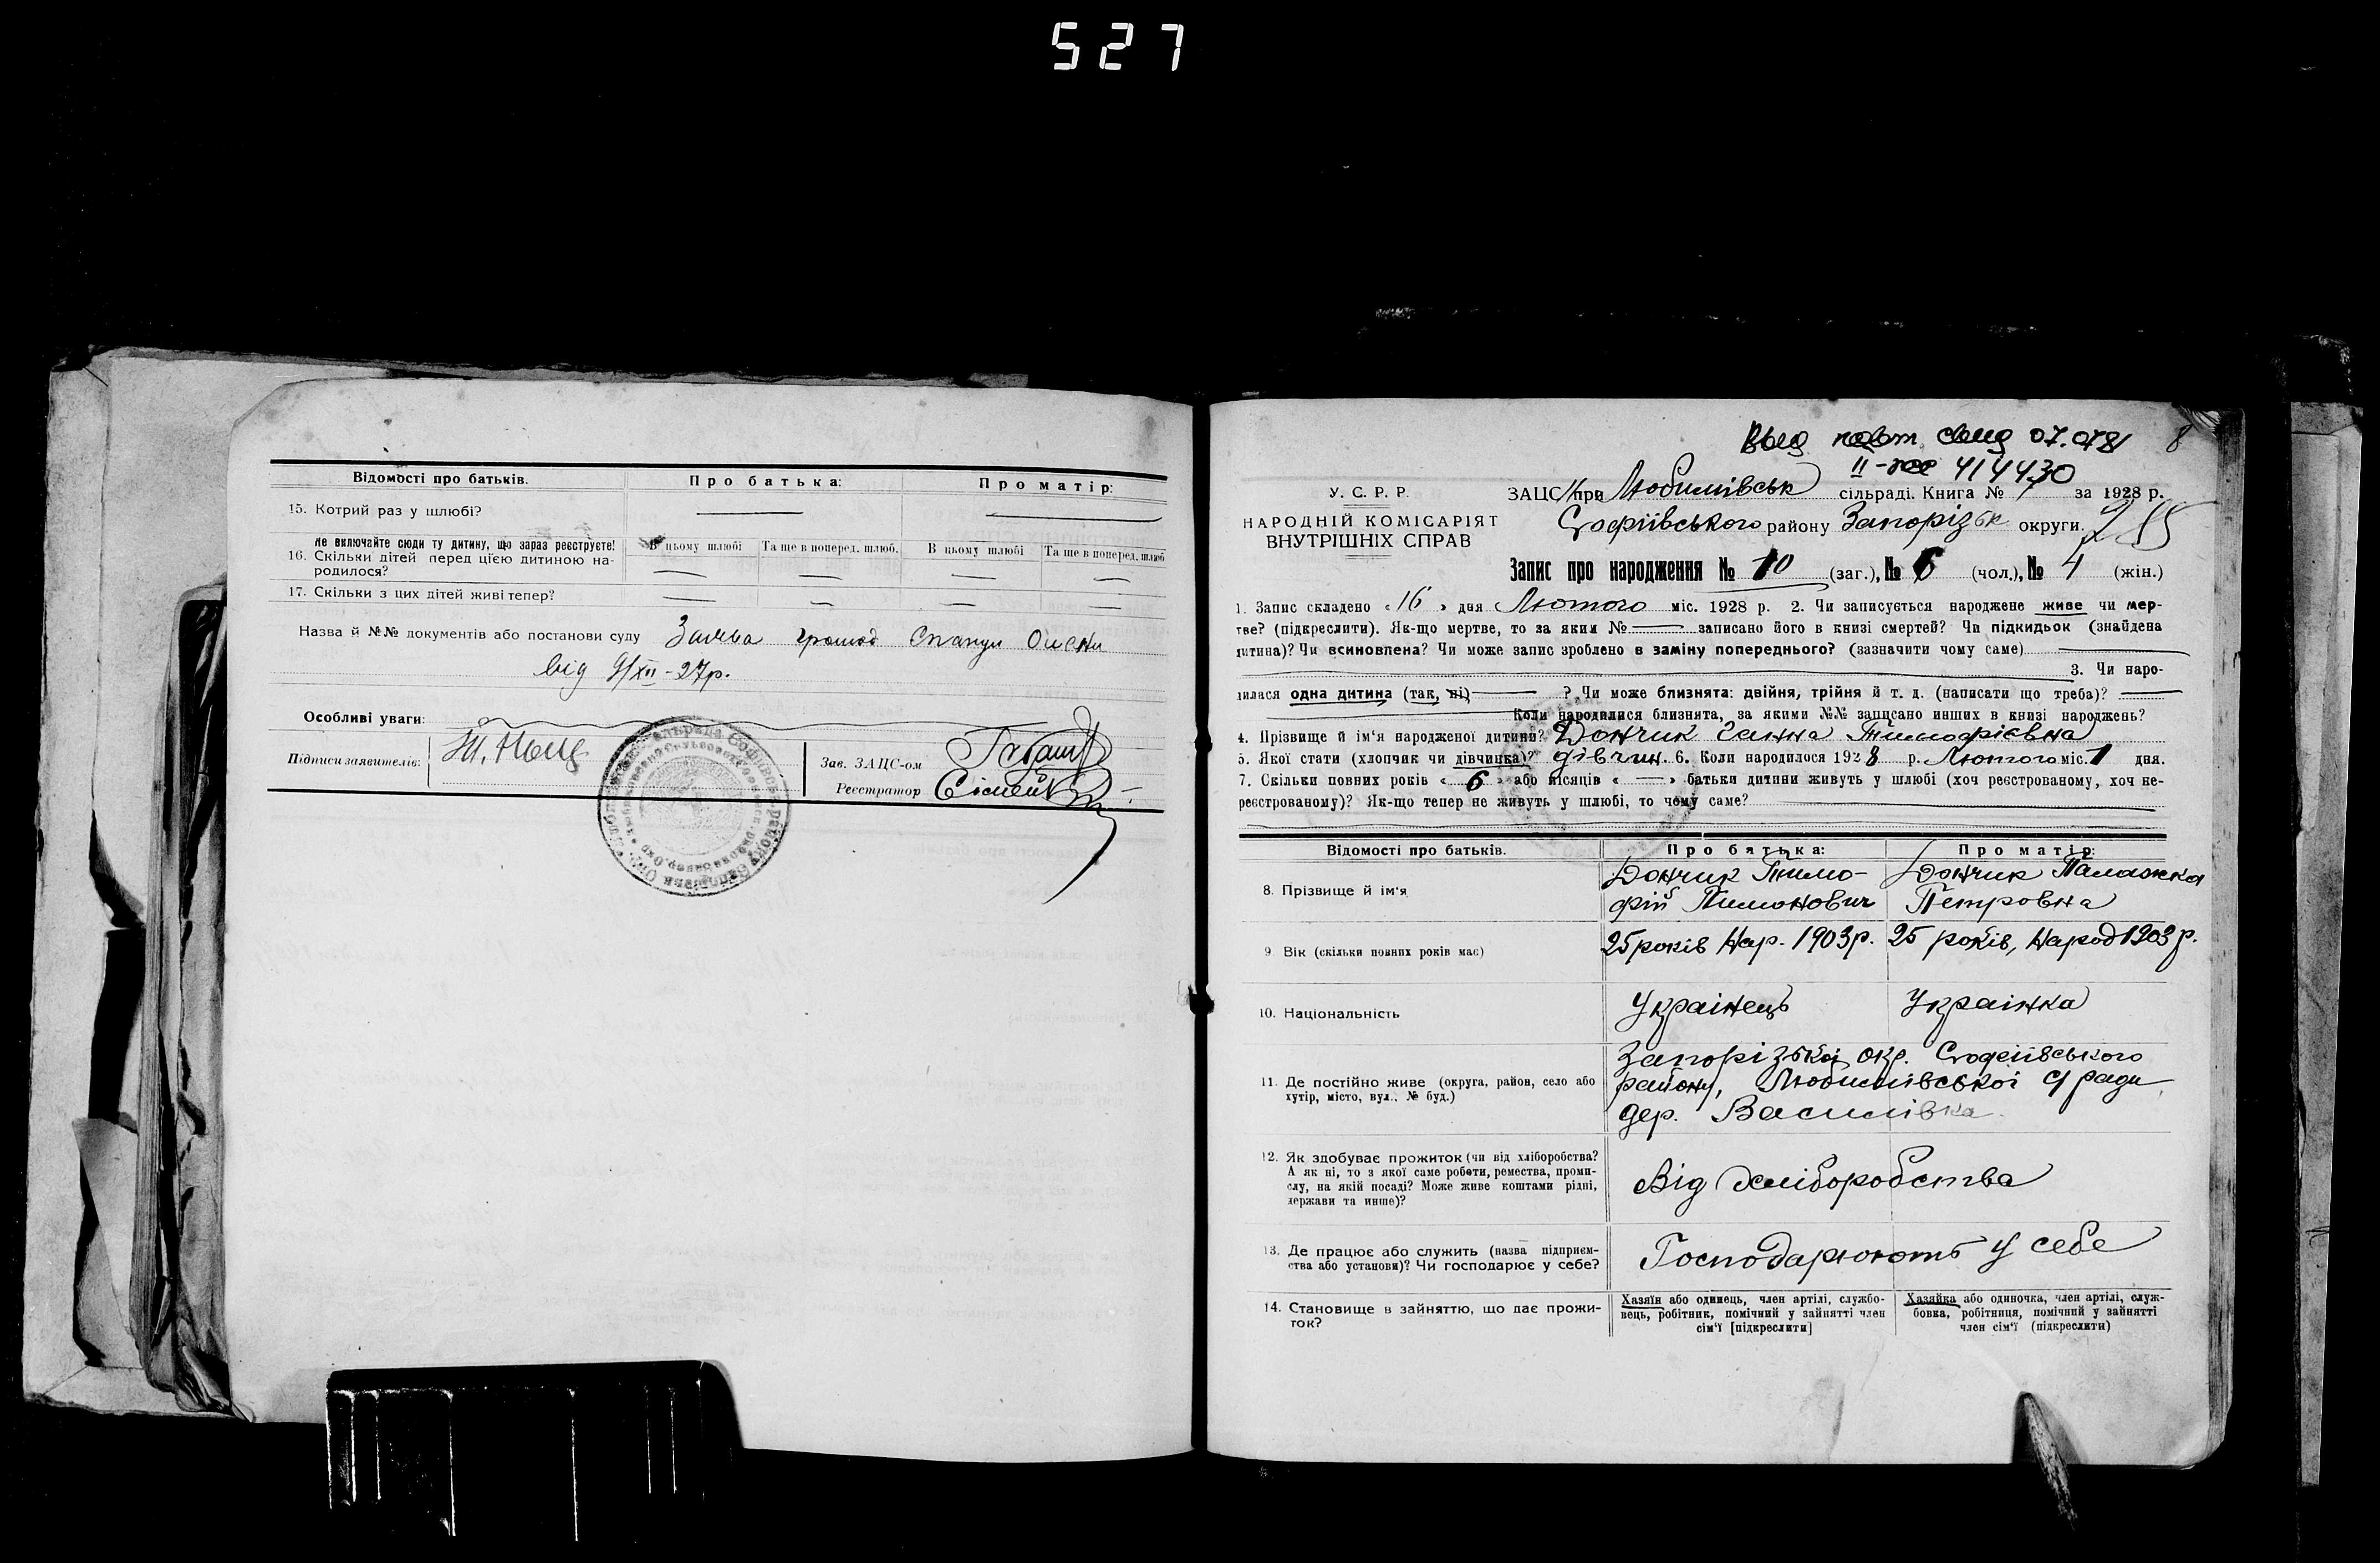 527
Відомості про батьків. Про батька: Про матір:
15. Котрий раз у шлюбі?
Не включайте сюди ту дитину, що зараз реєструєте!
16. Скільки дітей перед цією дитиною на-
родилося?
В цьому шлюбі Та ще в поперед. шлюб. В цьому шлюбі Та ще в поперед. шлюб
17. Скільки з цих дітей живі тепер?
Назва й №№ документів або постанови суду Заява громад
від 9/XII-27р.
Особливі уваги:
Підписи заявителів:
Зав. ЗАЦС-ом
Реєстратор
07.07.81 8
II- 414430
У. С. Р. Р.
НАРОДНІЙ КОМІСАРІЯТ
ВНУТРІШНІХ СПРАВ
ЗАЦС при Любимівськ сільраді. Книга № 1 за 1928 р.
Софіївського району Запорізьк округи.
Запис про народження № 10 (заг.), № 6 (чол.), № 4 (жін.)
1. Запис складено «16» дня Лютого міс. 1928 р. 2. Чи записується народжене живе чи мер-
тве? (підкреслити). Як-що мертве, то за яким № записано його в книзі смертей? Чи підкидьок (знайдена
дитина)? Чи всиновлена? Чи може запис зроблено в заміну попереднього? (зазначити чому саме)
3. Чи наро-
дилася одна дитина (так, ні) ? Чи може близнята: двійня, трійня й т. д. (написати що треба)?
Коли народилися близнята, за якими №№ записано инших в книзі народжень?
4. Прізвище й ім'я народженої дитини? Дончик Ганна Тимофієвна
5. Якої стати (хлопчик чи дівчинка)? дівчин. 6. Коли народилося 1928 р. Лютого міс. 1 дня.
7. Скільки повних років «6» або місяців « — » батьки дитини живуть у шлюбі (хоч реєстрованому, хоч не-
реєстрованому)? Як-що тепер не живуть у шлюбі, то чому саме?
Відомості про батьків. Про батька: Про матір:
8. Прізвище й ім'я
Дончик Тимо-
фій Пимонович
Дончик Палажка
Петровна
9. Вік (скільки повних років має) 25 років Нар. 1903р. 25 років, Народ 1903 р.
10. Національність Українець Українка
11. Де постійно живе (округа, район, село або
хутір, місто, вул., № буд.)
Запорізької окр. Софіївського
району, Любимівської с/ ради
дер. Василівка
12. Як здобуває прожиток (чи від хліборобства?
А як ні, то з якої саме роботи, ремества, проми-
слу, на якій посаді? Може живе коштами рідні,
держави та инше)?
Від хліборобства
13. Де працює або служить (назва підприєм-
ства або установи)? Чи господарює у себе?
Господарюють у себе
14. Становище в зайняттю, що дає прожи-
ток?
Хазяїн або одинець, член артілі, службо-
вець, робітник, помічний у зайнятті член
сім'ї [підкреслити]
Хазяйка або одиночка, член артілі, служ-
бовка, робітниця, помічний у зайнятті
член сім'ї (підкреслити)